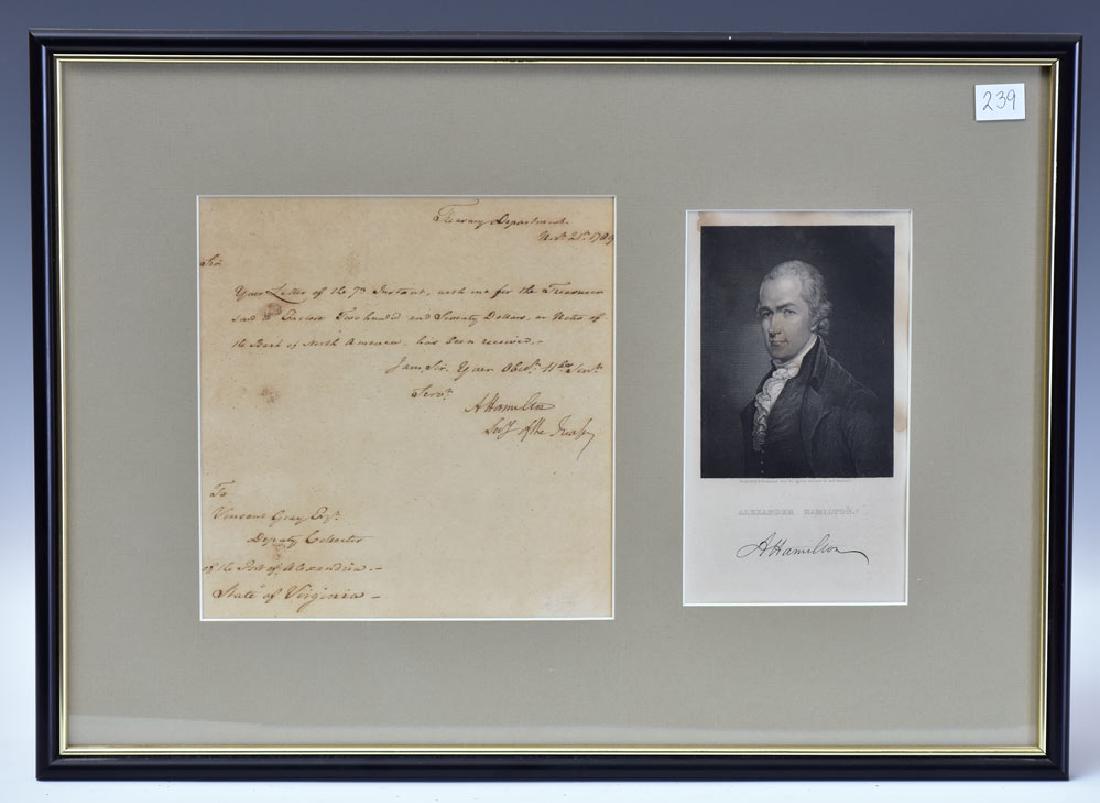 239
Treasury Department
Novr. 21st. 1789
Sir
Your Letter of the 7th Instant, with one for the Treasurer
said to Enclose Two hundred and Seventy Dollars, in Notes of
the Bank of North America, has been received.-
I am, Sir, Your Obedt. Hble Servt.
Servt.
A Hamilton
Secy of the Treasy
To
Vincent Gray Esqr.
Deputy Collector
of the Port of Alexandria.-
State of Virginia -
ALEXANDER HAMILTON.
A Hamilton